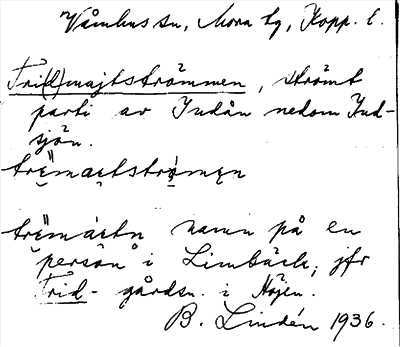 Våmhus sn, Mora tg, Kopp. l.
Tri(d)majtströmmen, strömt
parti av Indån nedom Ind-
sjön.
träma̤tstrǫ́męn
trämáitn namn på en
person i Limbäck; jfr
Trid- gårdsn. i Höjen.
B. Lindén 1936.